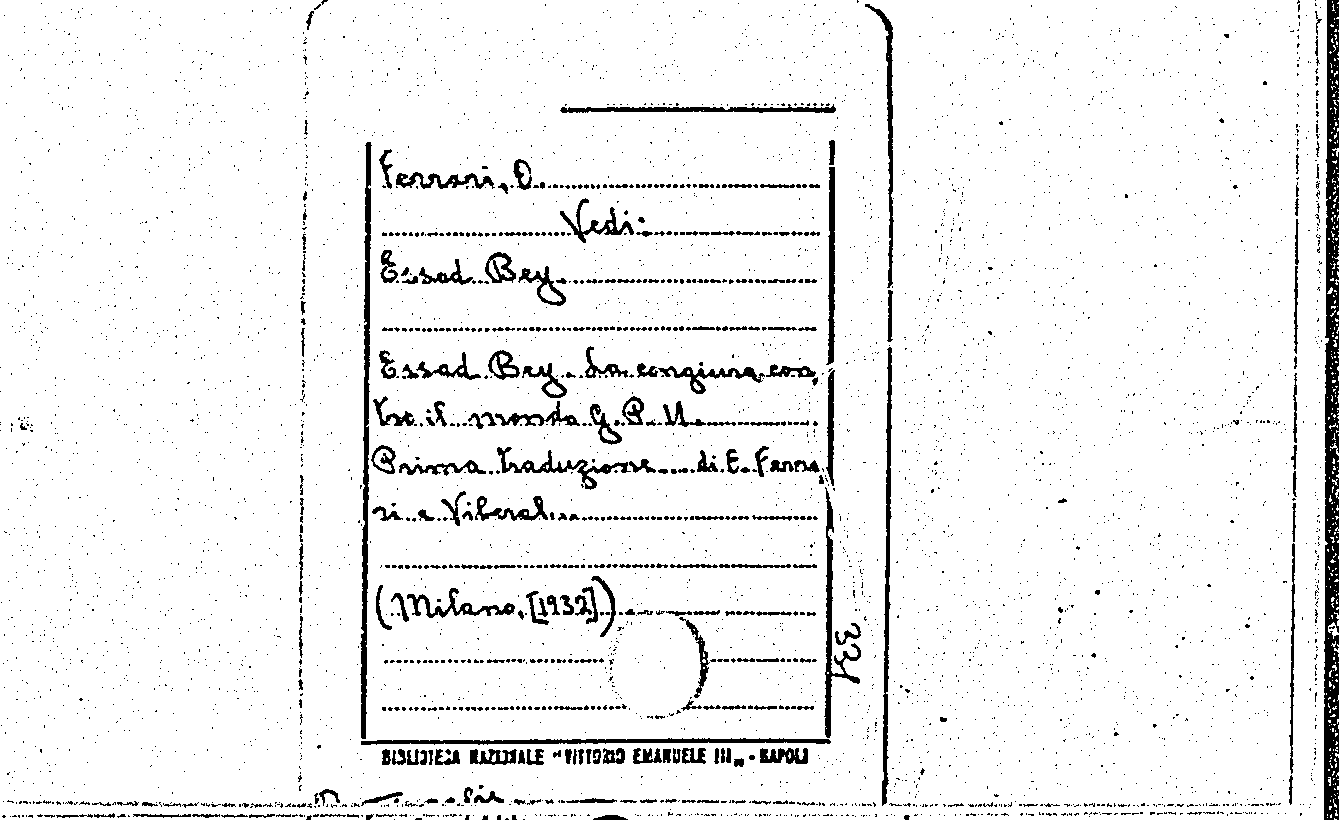 Ferrari, O.
Vedi:
Essad Bey.
Essad Bey. La congiura con
tro il mondo G. P. U.
Prima traduzione... di E. Ferra
ri e Viberal...
(Milano, [1932]).
331
BIBLIOTECA NAZIONALE "VITTORIO EMANUELE III" - NAPOLI